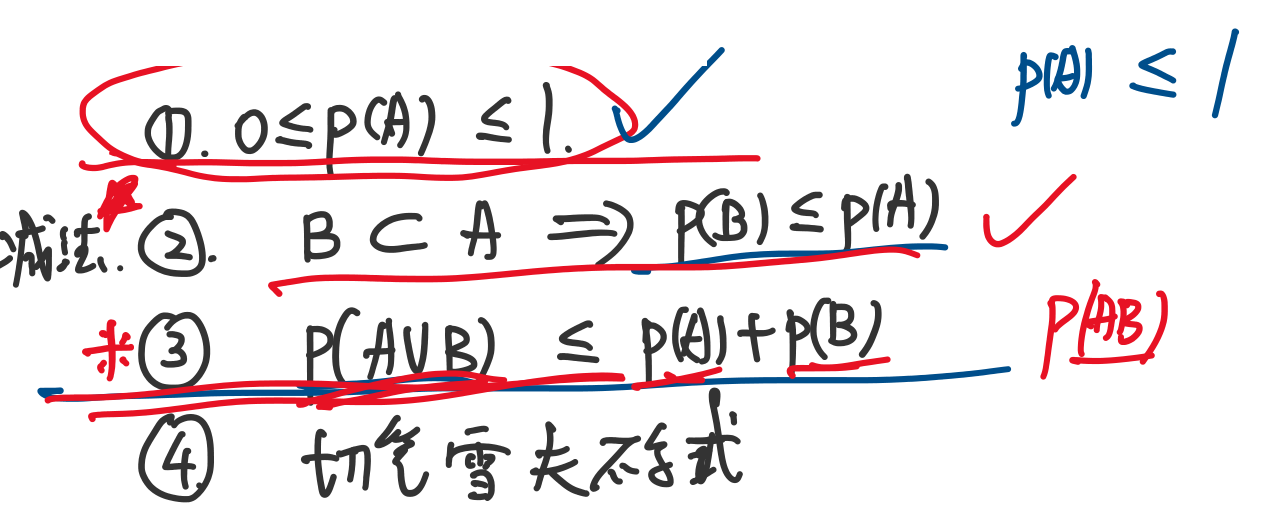 ①. 0≤p(A)≤1.
p(A)≤1
减法. ②. B⊂A⇒p(B)≤p(A)
※③ P(A∪B)≤p(A)+p(B)
P(AB)
④ 切比雪夫不等式